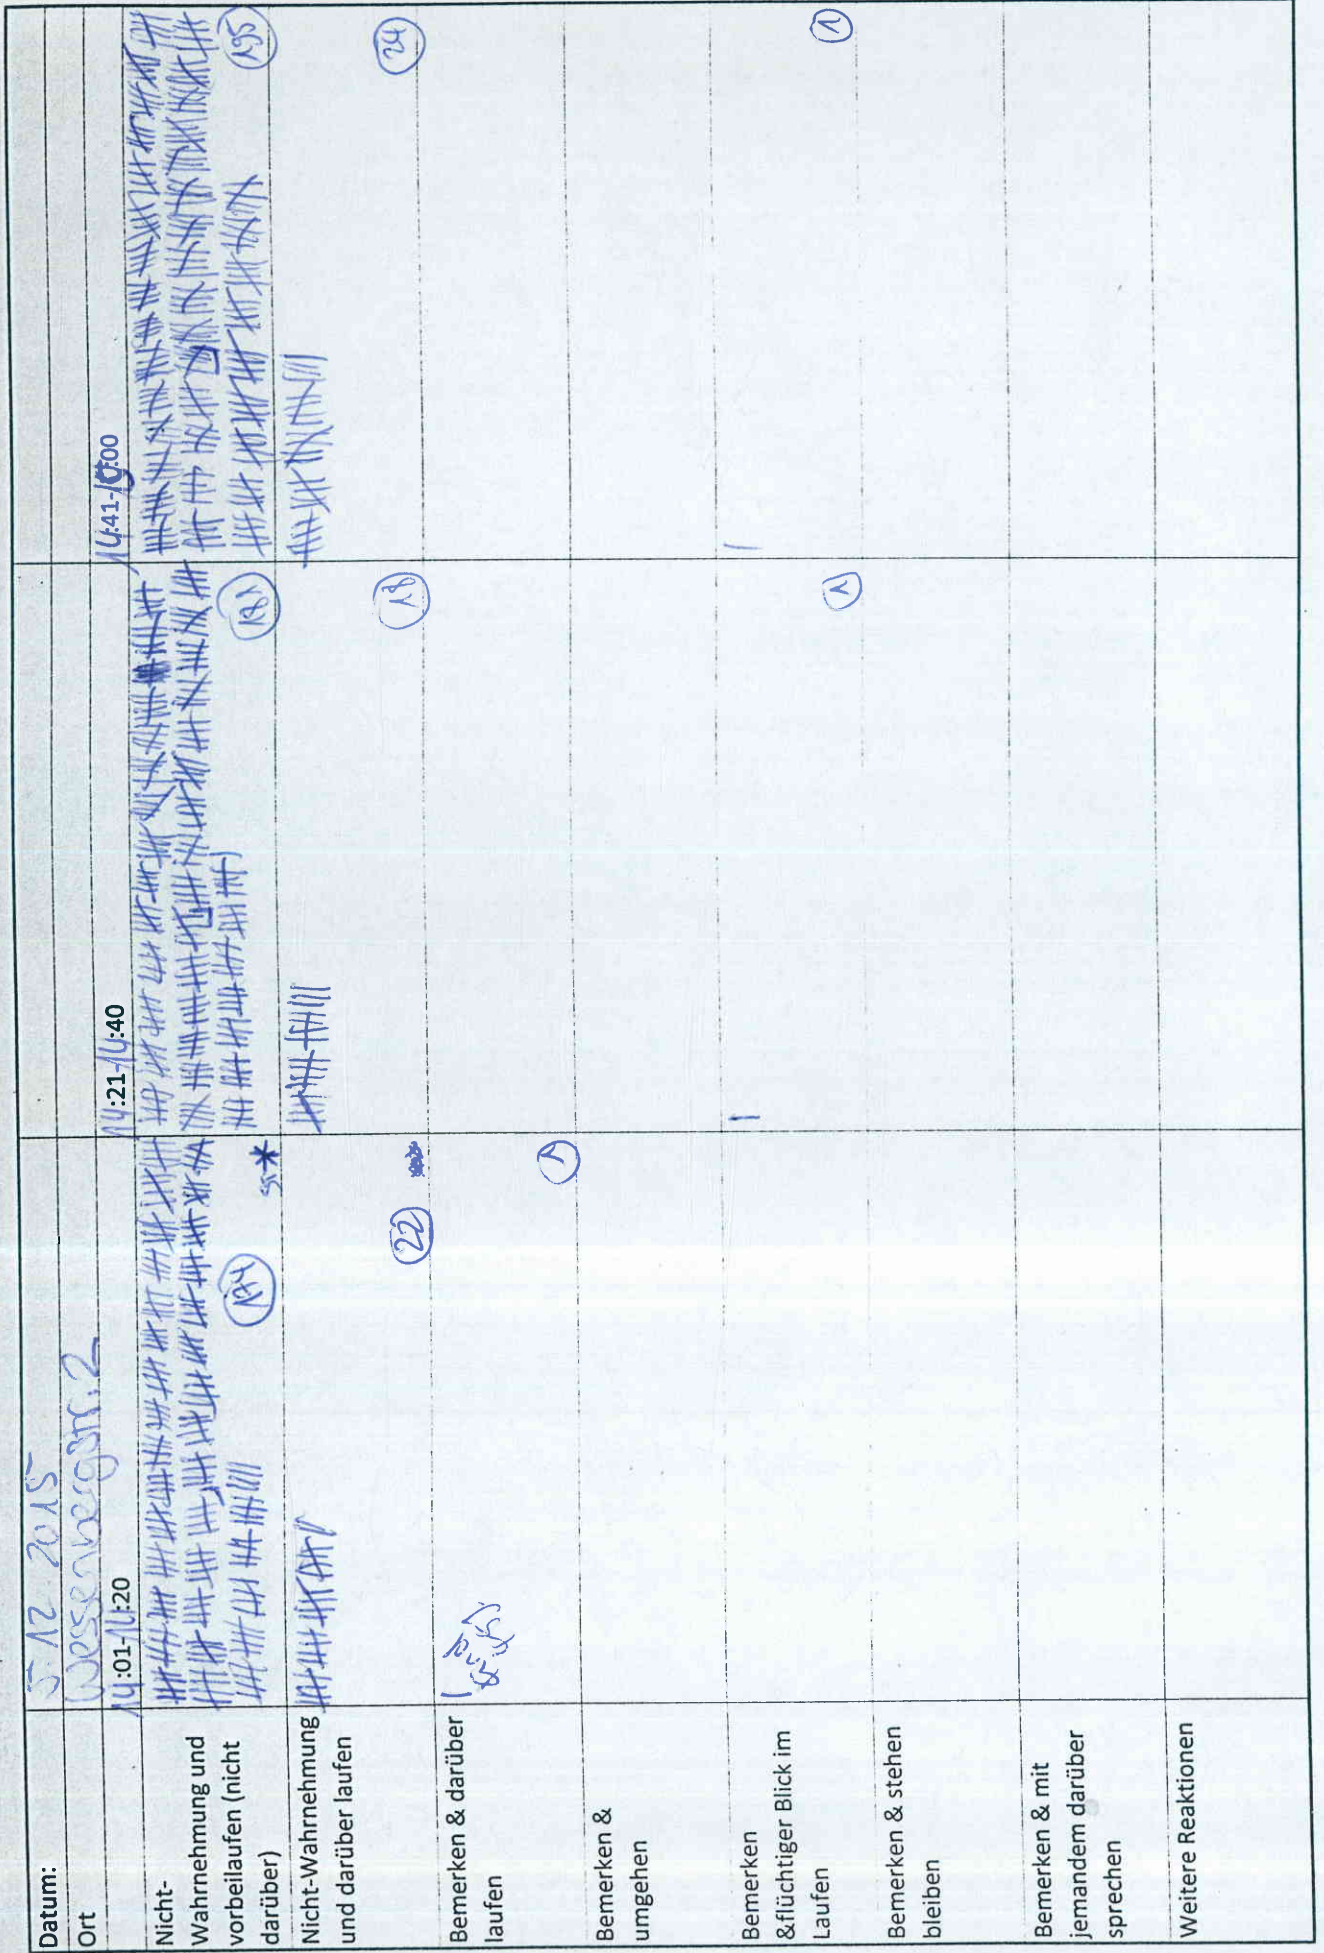 Datum:
5 12 2015
Ort
Wessenbergstr. 2
14:01-14:20
14:21-14:40
14:41-15:00
Nicht-
Wahrnehmung und
vorbeilaufen (nicht
darüber)
174
*
181
195
Nicht-Wahrnehmung
und darüber laufen
22
18
24
Bemerken & darüber
laufen
1
Bemerken &
umgehen
Bemerken
&flüchtiger Blick im
Laufen
1
1
Bemerken & stehen
bleiben
Bemerken & mit
jemandem darüber
sprechen
Weitere Reaktionen